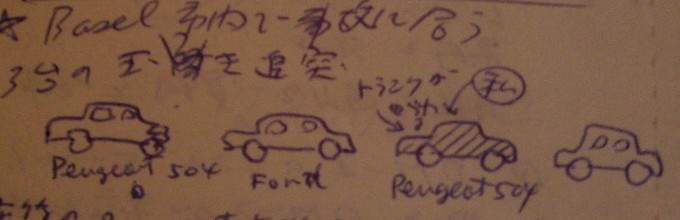 ☆ Basel 市内で事故に合う
3台の玉突き追突
トランクが
私
Peugeot 504
Ford
Peugeot 504